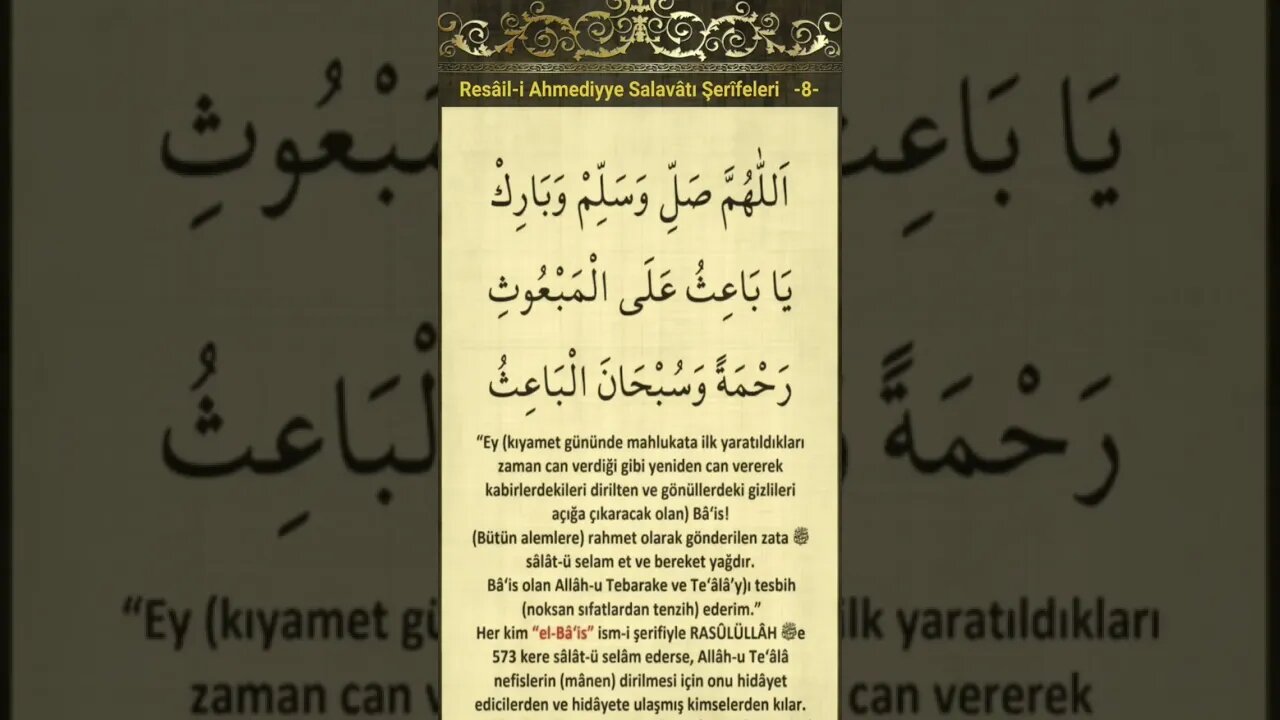 Resâil-i Ahmediyye Salavâtı Şerîfeleri -8-
اَللّٰهُمَّ صَلِّ وَسَلِّمْ وَبَارِكْ
يَا بَاعِثُ عَلَى الْمَبْعُوثِ
رَحْمَةً وَسُبْحَانَ الْبَاعِثُ
“Ey (kıyamet gününde mahlukata ilk yaratıldıkları
zaman can verdiği gibi yeniden can vererek
kabirlerdekileri dirilten ve gönüllerdeki gizlileri
açığa çıkaracak olan) Bâ‘is!
(Bütün alemlere) rahmet olarak gönderilen zata ﷺ
sâlât-ü selam et ve bereket yağdır.
Bâ‘is olan Allâh-u Tebarake ve Te‘âlâ’y)ı tesbih
(noksan sıfatlardan tenzih) ederim.”
Her kim “el-Bâ‘is” ism-i şerifiyle RASÛLÜLLÂH ﷺe
573 kere sâlât-ü selâm ederse, Allâh-u Te‘âlâ
nefislerin (mânen) dirilmesi için onu hidâyet
edicilerden ve hidâyete ulaşmış kimselerden kılar.